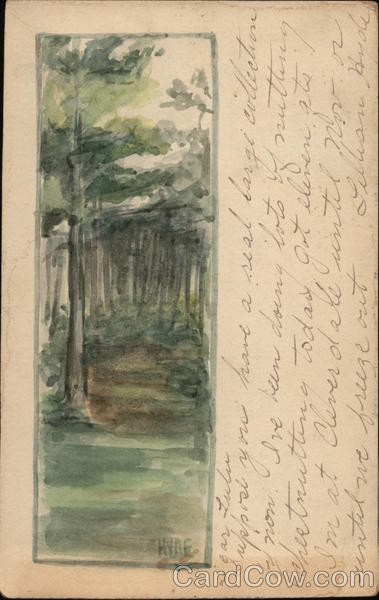 ear Lulu
uppose you have a real large collection
now. I've been doing lots of nutting
hestnutting today got eleven qts
I'm at Cleverdale until Nov or
until we freeze out. Lillian Hyde
HYDE
CardCow.com